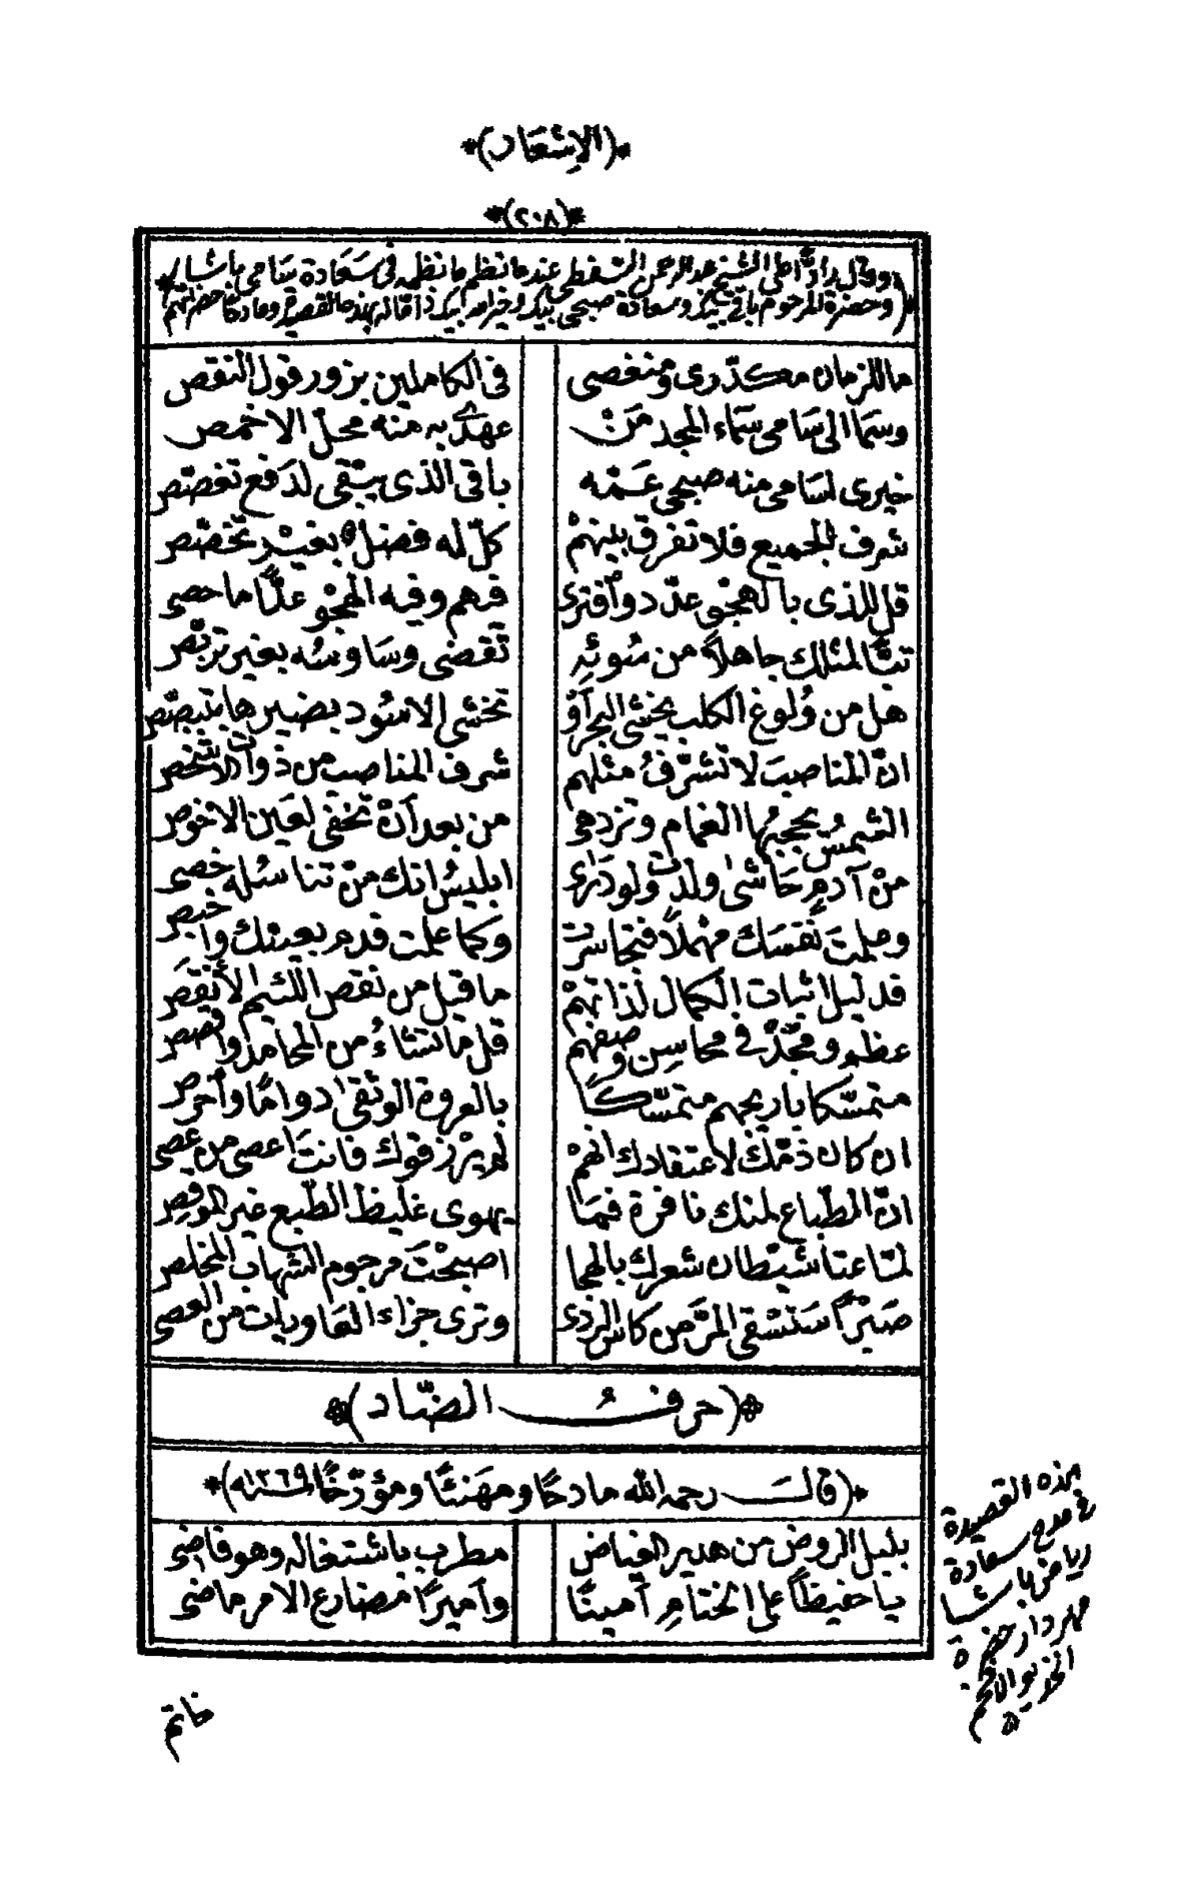 *(الإشعار)*
*(٢٠٨)*
(وقال رادًّا على الشيخ عبد الرحمن الشفطى عندما نظم ما نظم فى سَعَادة سَامى باشا
(وحضرة المرحوم باقى بيك وسعادة صبحى بيك وخيرالله بيك ذا قاله بهذه القصيدة ومادحًا حضراتهم
ما للزمان مكدّرى ومنغصى فى الكاملين بزور قول النقص
وسَمَا الى سَامى سَمَاء المجد مَنْ عهدى به منه محلّ الاخمص
خيرى لسَامى منه صبحى عَمّه باقى الذى يبقى لدَفع تغصّص
شرف الجميع فلا تفرق بينهمْ كلّ له فضلٌ بغيْر تخصّص
قل للذى بالهجْو عدّد وأفترى فيهم وفيه الهجْو عدًّا ما حصى
تبًّا لمثلك جاهلاً من سُوئِهِ تقضى وسَاوسُه بغير تربّص
هل من وُلوغ الكلب يخشى البحر أوْ تخشى الاسُود بضير ها بتبصّص
انّ المناصبَ لا تشرّفُ مثلهم شرف المناصب من ذوات الاشخص
الشمسُ يحجبُها الغمام وتزدهى من بعد أنْ تخفى لعَين الاخوص
منْ آدمٍ حَاشىٰ ولدت ولو دَرٰى ابليسُ انك منْ تناسُله خصى
وجهلتَ نَفسَك مهْملاً فتجاسَرت وكما علمت قدم بعينك وأخبص
قد ليل اثبات الكمال لذاتهمْ ما قيل من نقص اللئيم الأنقَص
عظم ومجّدْ فى محاسِن وصفهم قل ما تشاءُ من المحامد واقصص
متمسّكا باريجهم متمسّكًا بالعروة الوثقىٰ دوامًا وأحرص
ان كان ذمّك لاعتقادك انهمْ لم يرْزقوك فانتَ اعصى من عصى
انّ الطباع لمنك نافرة فمَا يهوى غليظ الطبع غير الموقص
لمّا عتا شيْطان شعرك بالهجا اصبحْتَ مرجوم الشهاب المخلص
صَبْرًا سَتشقى المرَّ من كاس الردى وترى جزاء الغاويات من العصى
*(حرفُ الضّاد)*
*(قالَ رحمه الله مادحًا ومهَنئًا ومؤرّخًا سنة ١٢٦٩)*
بلبل الروض من هدير الفياض مطرب باشتغاله وهو قاضى
يا حفيظاً على الختامِ أمينًا وأميرًا مضارع الامر ماضى
هذه القصيدة
فى مدح سعادة
رياض باشا
مهردار حضرة
الخديو الافخم
خاتم